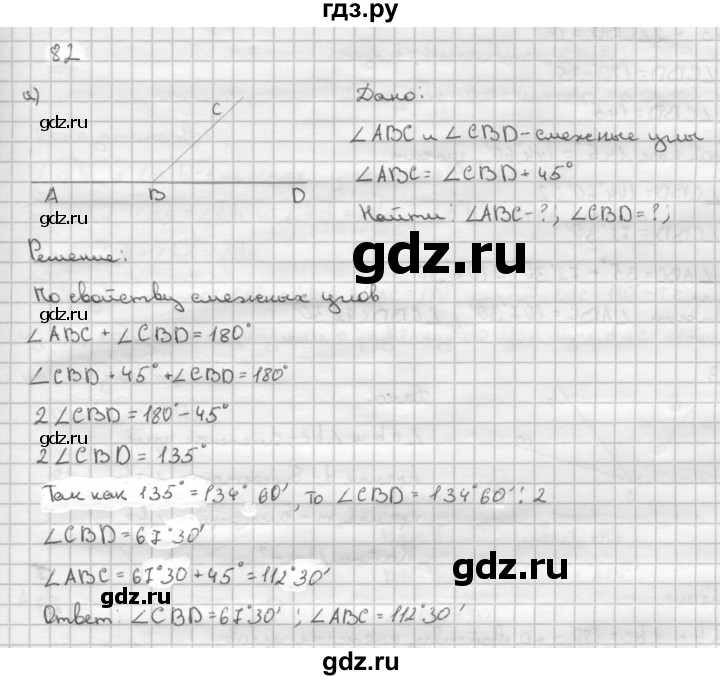 гдз.ру
82
а)
C
gdz.ru
gdz.ru
A B D
gdz.ru
Дано:
∠ABC и ∠CBD - смежные углы
∠ABC = ∠CBD + 45°
gdz.ru
Найти: ∠ABC - ?; ∠CBD = ?;
gdz.ru
Решение:
По свойству смежных углов
∠ABC + ∠CBD = 180°
gdz.ru
∠CBD + 45° + ∠CBD = 180°
2 ∠CBD = 180° - 45°
gdz.ru
gdz.ru
2 ∠CBD = 135°
Так как 135° = 134° 60', то ∠CBD = 134° 60' : 2
gdz.ru
∠CBD = 67° 30'
gdz.ru
∠ABC = 67° 30 + 45° = 112° 30'
Ответ: ∠CBD = 67° 30' ; ∠ABC = 112° 30'
gdz.ru
gdz.ru